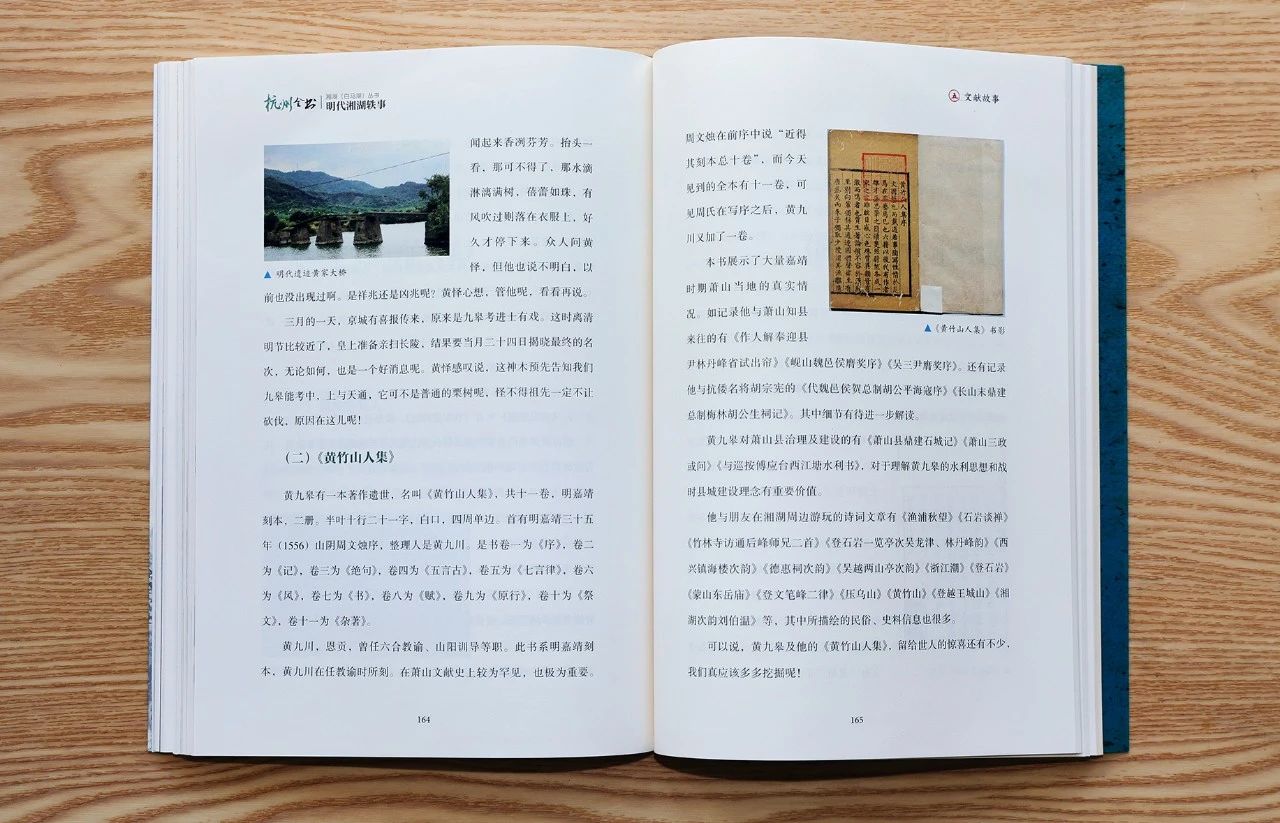 杭州全书
湘湖（白马湖）丛书
明代湘湖轶事
闻起来香冽芬芳。抬头一
看，那可不得了，那水滴
淋漓满树，蓓蕾如珠，有
风吹过则落在衣服上，好
久才停下来。众人问黄
怿，但他也说不明白，以
▲ 明代遗迹黄家大桥
前也没出现过啊。是祥兆还是凶兆呢？黄怿心想，管他呢，看看再说。
三月的一天，京城有喜报传来，原来是九皋考进士有戏。这时离清
明节比较近了，皇上准备亲扫长陵，结果要当月二十四日揭晓最终的名
次，无论如何，也是一个好消息呢。黄怿感叹说，这神木预先告知我们
九皋能考中，上与天通，它可不是普通的栗树呢，怪不得祖先一定不让
砍伐，原因在这儿呢！
（二）《黄竹山人集》
黄九皋有一本著作遗世，名叫《黄竹山人集》，共十一卷，明嘉靖
刻本，二册。半叶十行二十一字，白口，四周单边。首有明嘉靖三十五
年（1556）山阴周文烛序，整理人是黄九川。是书卷一为《序》，卷二
为《记》，卷三为《绝句》，卷四为《五言古》，卷五为《七言律》，卷六
为《风》，卷七为《书》，卷八为《赋》，卷九为《原行》，卷十为《祭
文》，卷十一为《杂著》。
黄九川，恩贡，曾任六合教谕、山阳训导等职。此书系明嘉靖刻
本，黄九川在任教谕时所刻。在萧山文献史上较为罕见，也极为重要。
164
五 文献故事
周文烛在前序中说“近得
其刻本总十卷”，而今天
见到的全本有十一卷，可
见周氏在写序之后，黄九
川又加了一卷。
本书展示了大量嘉靖
时期萧山当地的真实情
况。如记录他与萧山知县
来往的有《作人解奉迎县
黄竹山人集序
▲《黄竹山人集》书影
尹林丹峰省试出帘》《岘山魏邑侯膺奖序》《吴三尹膺奖序》。还有记录
他与抗倭名将胡宗宪的《代魏邑侯贺总制胡公平海寇序》《长山末鼎建
总制梅林胡公生祠记》。其中细节有待进一步解读。
黄九皋对萧山县治理及建设的有《萧山县鼎建石城记》《萧山三政
或问》《与巡按傅应台西江塘水利书》，对于理解黄九皋的水利思想和战
时县城建设理念有重要价值。
他与朋友在湘湖周边游玩的诗词文章有《渔浦秋望》《石岩谈禅》
《竹林寺访通后峰师兄二首》《登石岩一览亭次吴龙津、林丹峰韵》《西
兴镇海楼次韵》《德惠祠次韵》《吴越两山亭次韵》《浙江潮》《登石岩》
《蒙山东岳庙》《登文笔峰二律》《压乌山》《黄竹山》《登越王城山》《湘
湖次韵刘伯温》等，其中所描绘的民俗、史料信息也很多。
可以说，黄九皋及他的《黄竹山人集》，留给世人的惊喜还有不少，
我们真应该多多挖掘呢！
165